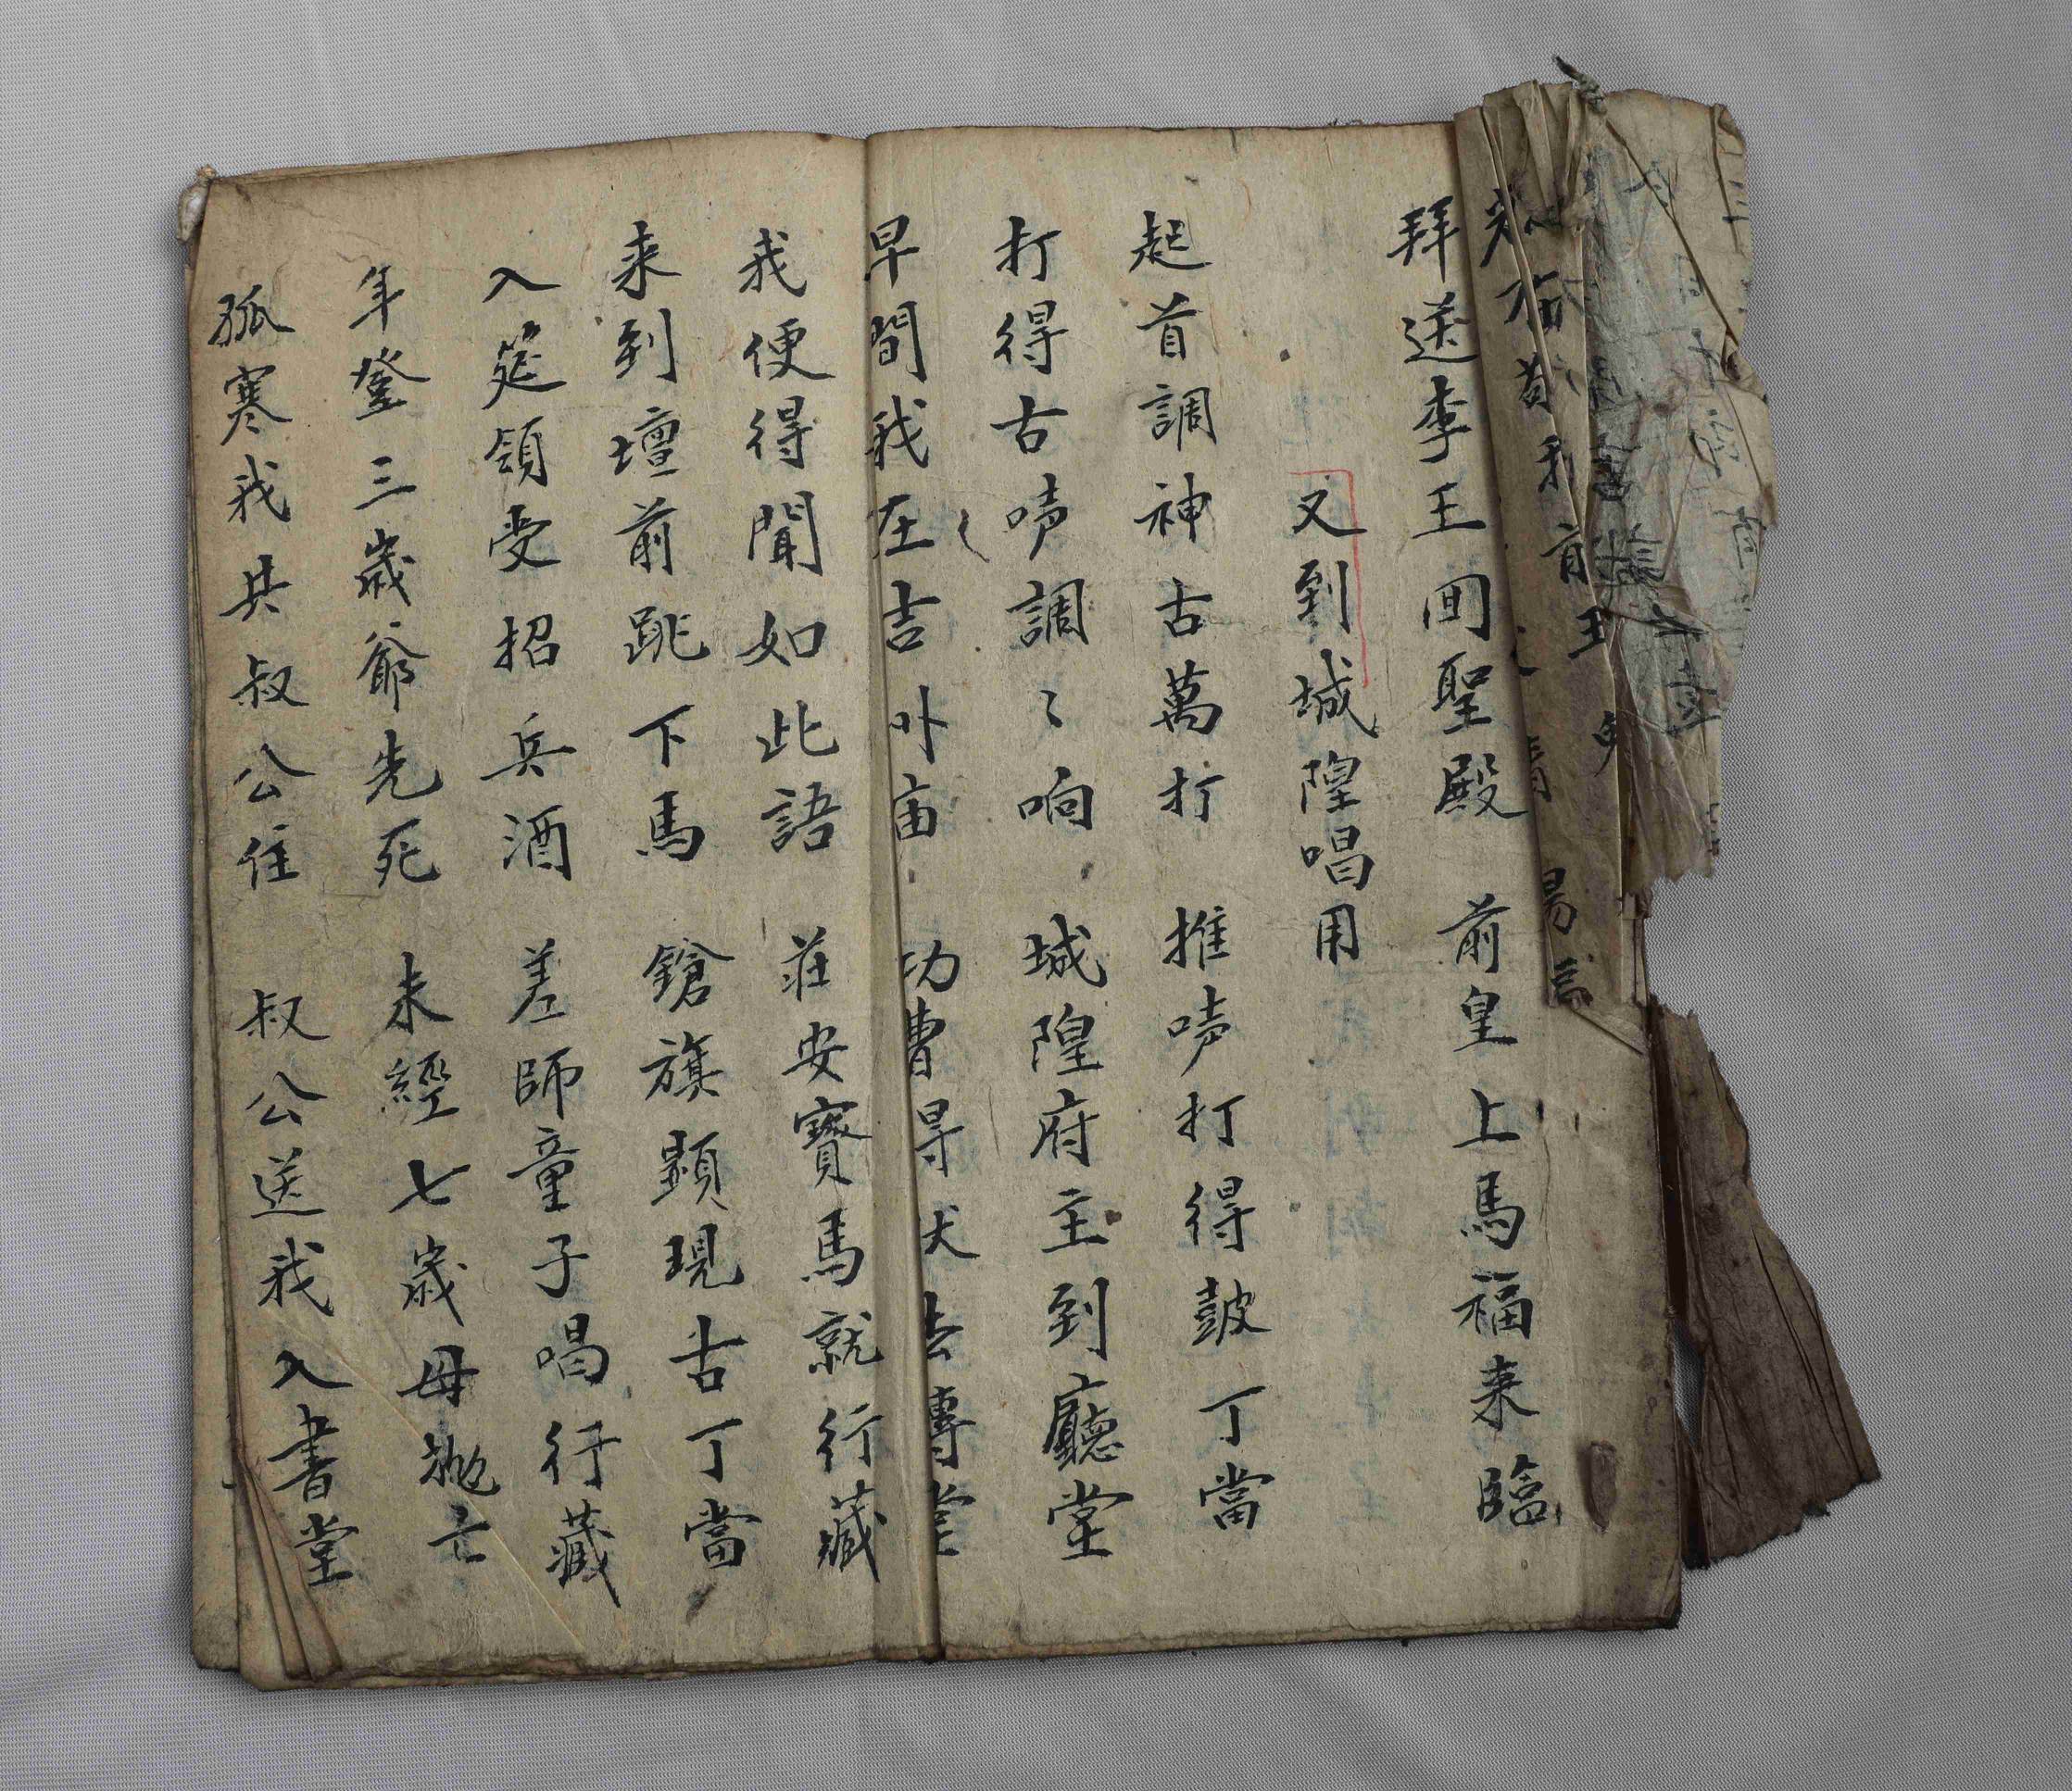 拜送李王囬聖殿　前皇上馬福来臨
又到城隍唱用
起首調神古萬打　推㖓打得皷丁當
打得古㖓調〻响　城隍府主到廳堂
早間我在吉卟庙　功曹得伏去傳堂
我便得聞如此語　莊安寶馬就行藏
来到壇前跳下馬　鎗旗顕現古丁當
入筵領受招兵酒　差師童子唱行藏
年登三歲爺先死　未經七歲母抛亡
孤寒我共叔公住　叔公送我入書堂